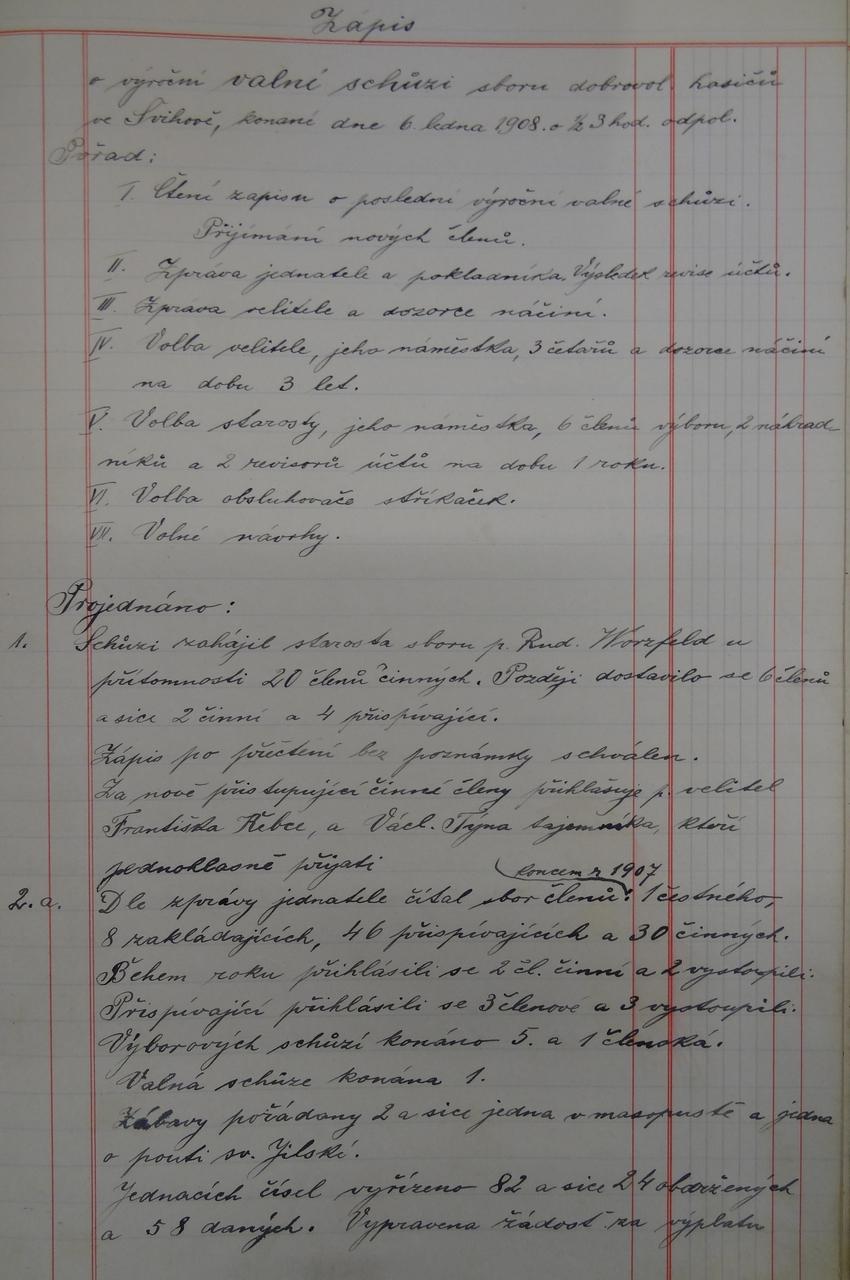 Zápis
o výroční valní schůzi sboru dobrovol. hasičů
ve Švihově, konané dne 6. ledna 1908. o ½ 3 hod. odpol.
Pořad:
I. Čtení zapisu o poslední výroční valné schůzi.
Přijímání nových členů.
II. Zpráva jednatele a pokladníka. Výsledek revise účtů.
III. Zpráva velitele a dozorce náčiní.
IV. Volba velitele, jeho náměstka, 3 četařů a dozorce náčiní
na dobu 3 let.
V. Volba starosty, jeho náměstka, 6 členů výboru, 2 náhrad-
níků a 2 revisorů účtů na dobu 1 roku.
VI. Volba obsluhovače stříkaček.
VII. Volné návrhy.
Projednáno:
1. Schůzi zahájil starosta sboru p. Rud. Worzfeld u
přítomnosti 20 členů činných. Později dostavilo se 6 členů
a sice 2 činní a 4 přispívající.
Zápis po přečtení bez poznámky schválen.
Za nově přistupující činné členy přihlašuje p. velitel
Františka Řebce, a Václ. Týna tajemníka, kteří
jednohlasně přijati
koncem r 1907
2. a. Dle zprávy jednatele čítal sbor členů: 1 čestného,
8 zakládajících, 46 přispívajících a 30 činných.
Během roku přihlásili se 2 čl. činní a 2 vystoupili.
Přispívající přihlásili se 3 členové a 3 vystoupili.
Výborových schůzí konáno 5. a 1 členská.
Valná schůze konána 1.
Zábavy pořádany 2 a sice jedna v masopustě a jedna
o pouti sv. Jilské.
Jednacích čísel vyřízeno 82 a sice 24 obdržených
a 58 daných. Vypravena žádost za výplatu